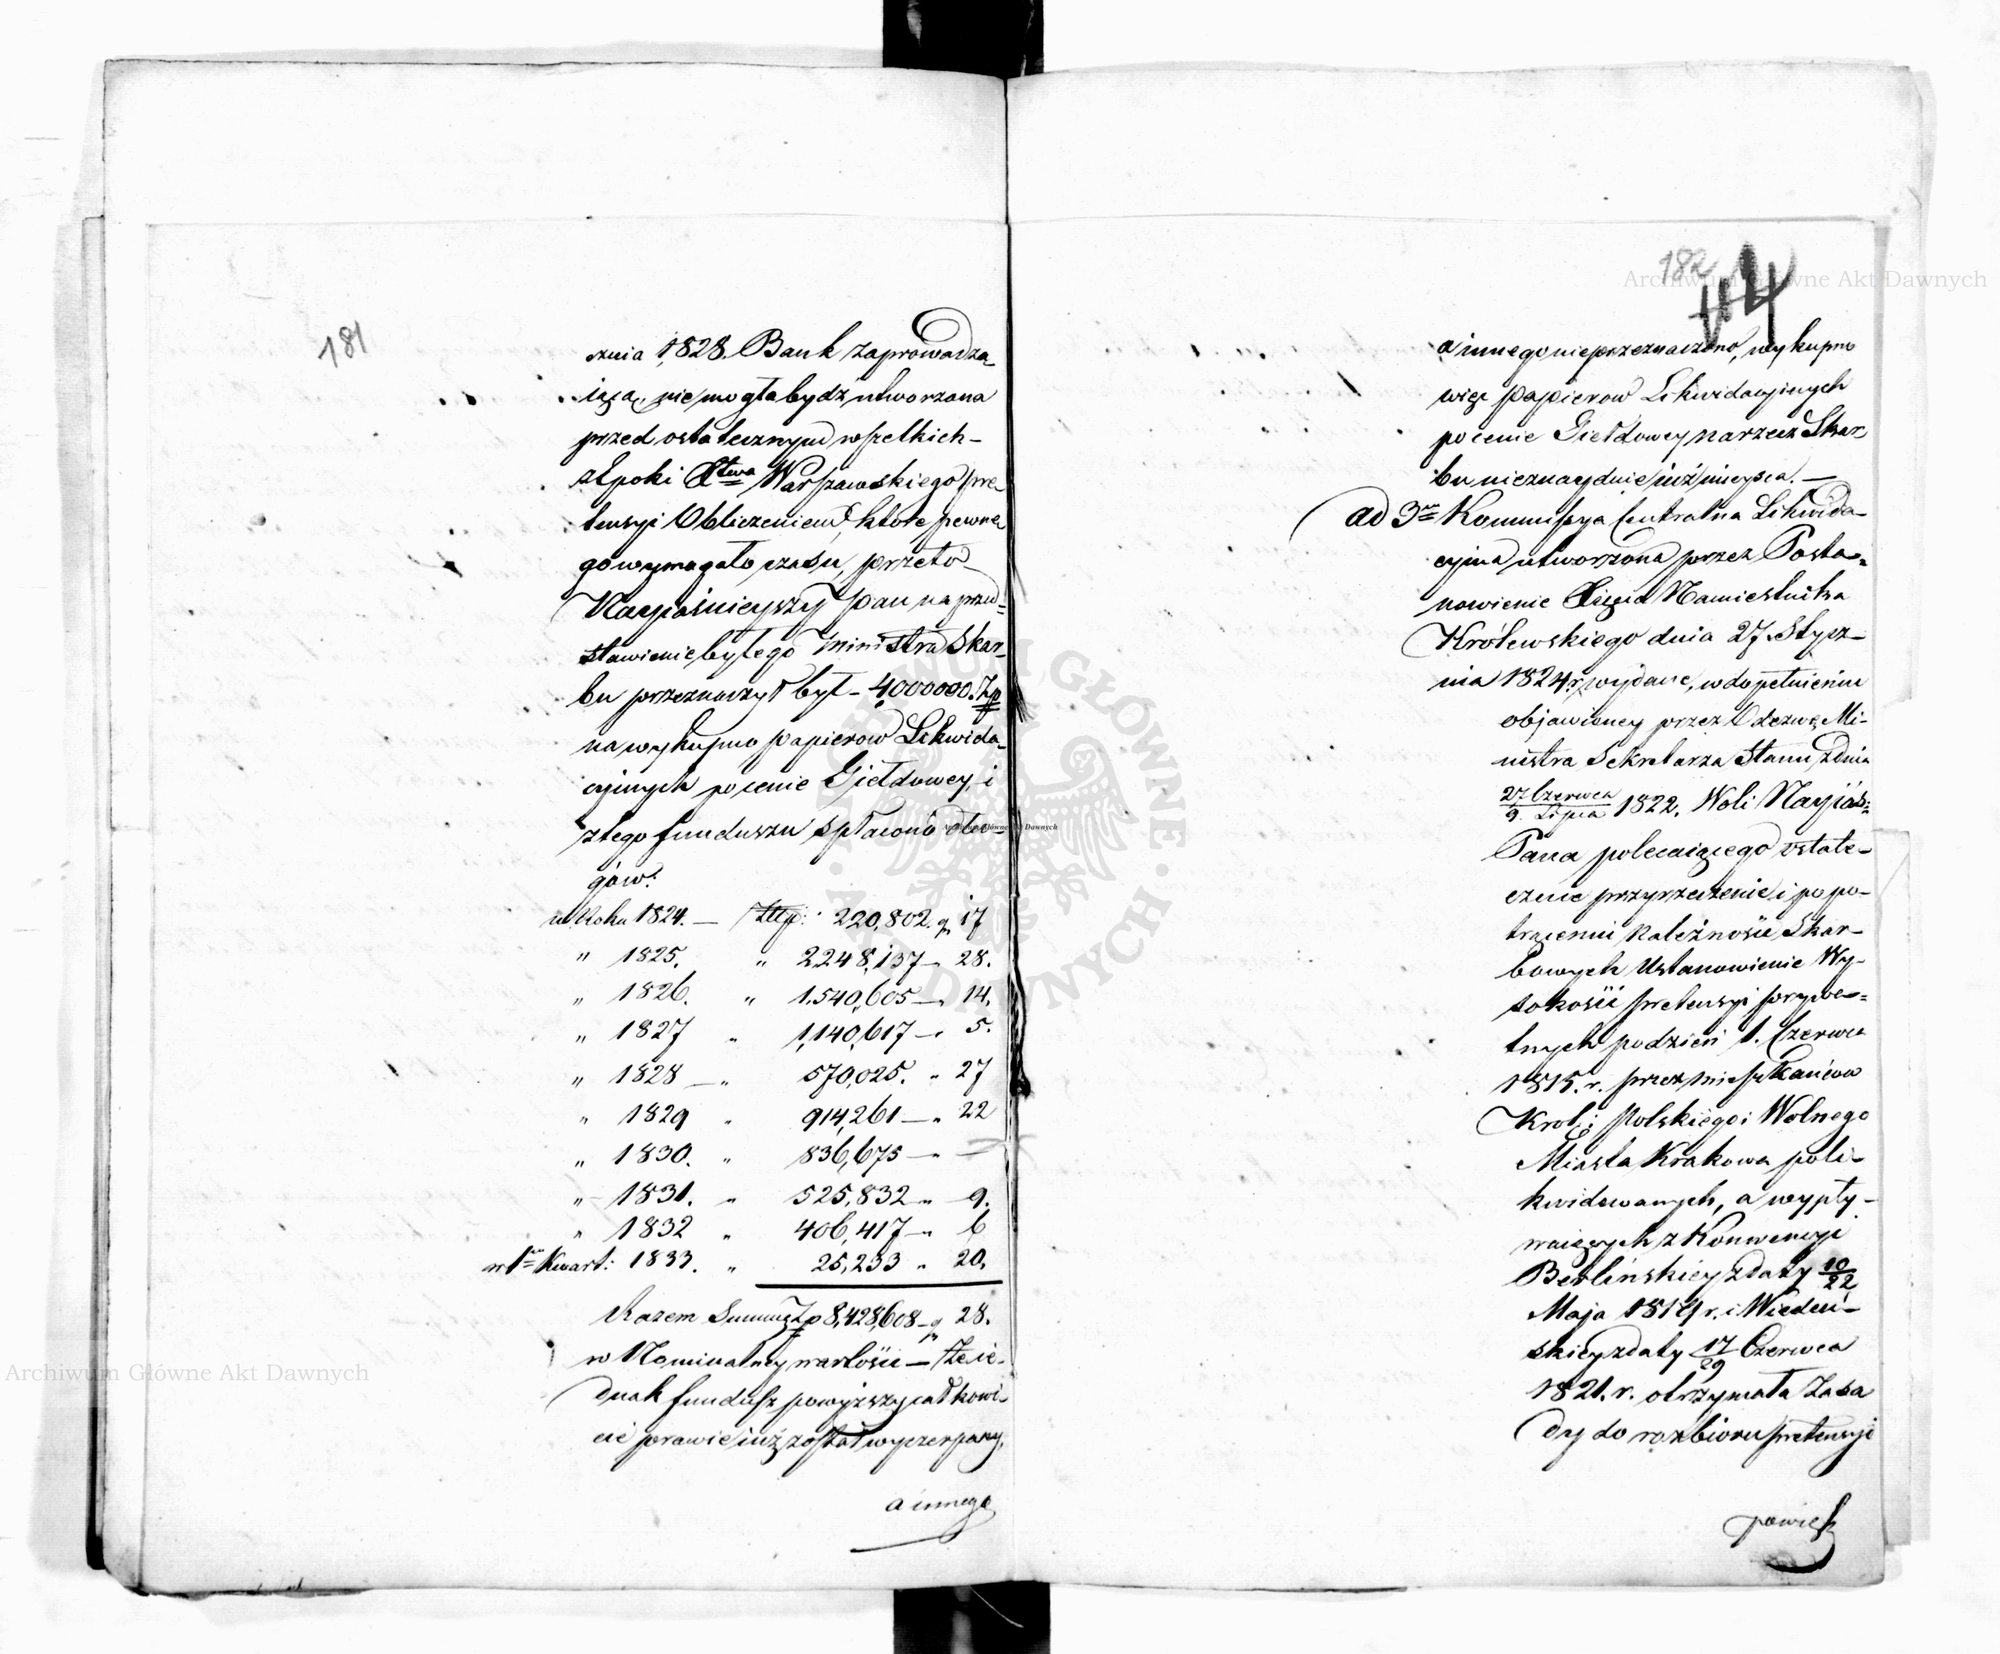 181
cznia 1828. Bank zaprowadza-
iąca, nie mogła bydź utworzona
przed ostatecznym wszelkich-
z Epoki Xtwa Warszawskiego pre-
tensyi Obliczeniem, które pewne-
go wymagało czasu, przeto
Nayiaśnieyszy Pan na przed=
stawienie byłego Ministra Skar-
bu przeznaczył był - 4,000000. Zp
na wykupno papierow Likwida-
cyinych po cenie Giełdowey, i
z tego funduszu spłacono dłu-
gów:
w Roku 1824. — Złtp: 220,802. g 17
" 1825. " 2248,137 — 28.
" 1826. " 1.540,605 — 14.
" 1827 " 1,140,617 — 5.
" 1828 — " 570,025. " 27
" 1829 " 914,261 — " 22
" 1830. " 836,675 — " —
" 1831. " 525,832 " 9.
" 1832 " 406,417 — " 6
w 1m Kwart: 1833. " 25,233 " 20.
Razem Summę Zp 8,428,608 - g 28.
w Nominalney wartości — Że ie-
dnak fundusz powyższy całkowi-
cie prawie iuż został wyczerpany,
a innego
182
114
a innego nie przeznaczono, wykupno
więc papierow Likwidacyinych
po cenie Giełdowey na rzecz Skar-
bu nieznayduie iuż mieysca. —
ad 3m Kommissya Centralna Likwida-
cyina utworzona przez Posta=
nowienie Xięcia Namiestnika
Królewskiego dnia 27. Stycz-
nia 1824 r. wydane, w dopełnieniu
objawioney przez Odezwę Mi-
nistra Sekretarza Stanu z dnia
27 Czerwca / 9. Lipca 1822. Woli Nayiaś:
Pana polecaiącego ostate-
czne przyrzeczenie i po po-
trąceniu Należności Skar-
bowych Ustanowienie Wy-
sokości pretensyi prywa=
tnych po dzień 1. Czerwca
1815. r. przez mieszkańców
Krol: Polskiego i Wolnego
Miasta Krakowa poli-
kwidowanych, a wypły-
waiących z Konwencyi
Berlińskiey z daty 10/22
Maja 1819 r. i Wiedeń-
skiey z daty 17/29 Czerwca
1821. r. otrzymała Zasa
dy do rozbioru pretensyi
Archiwum Główne Akt Dawnych